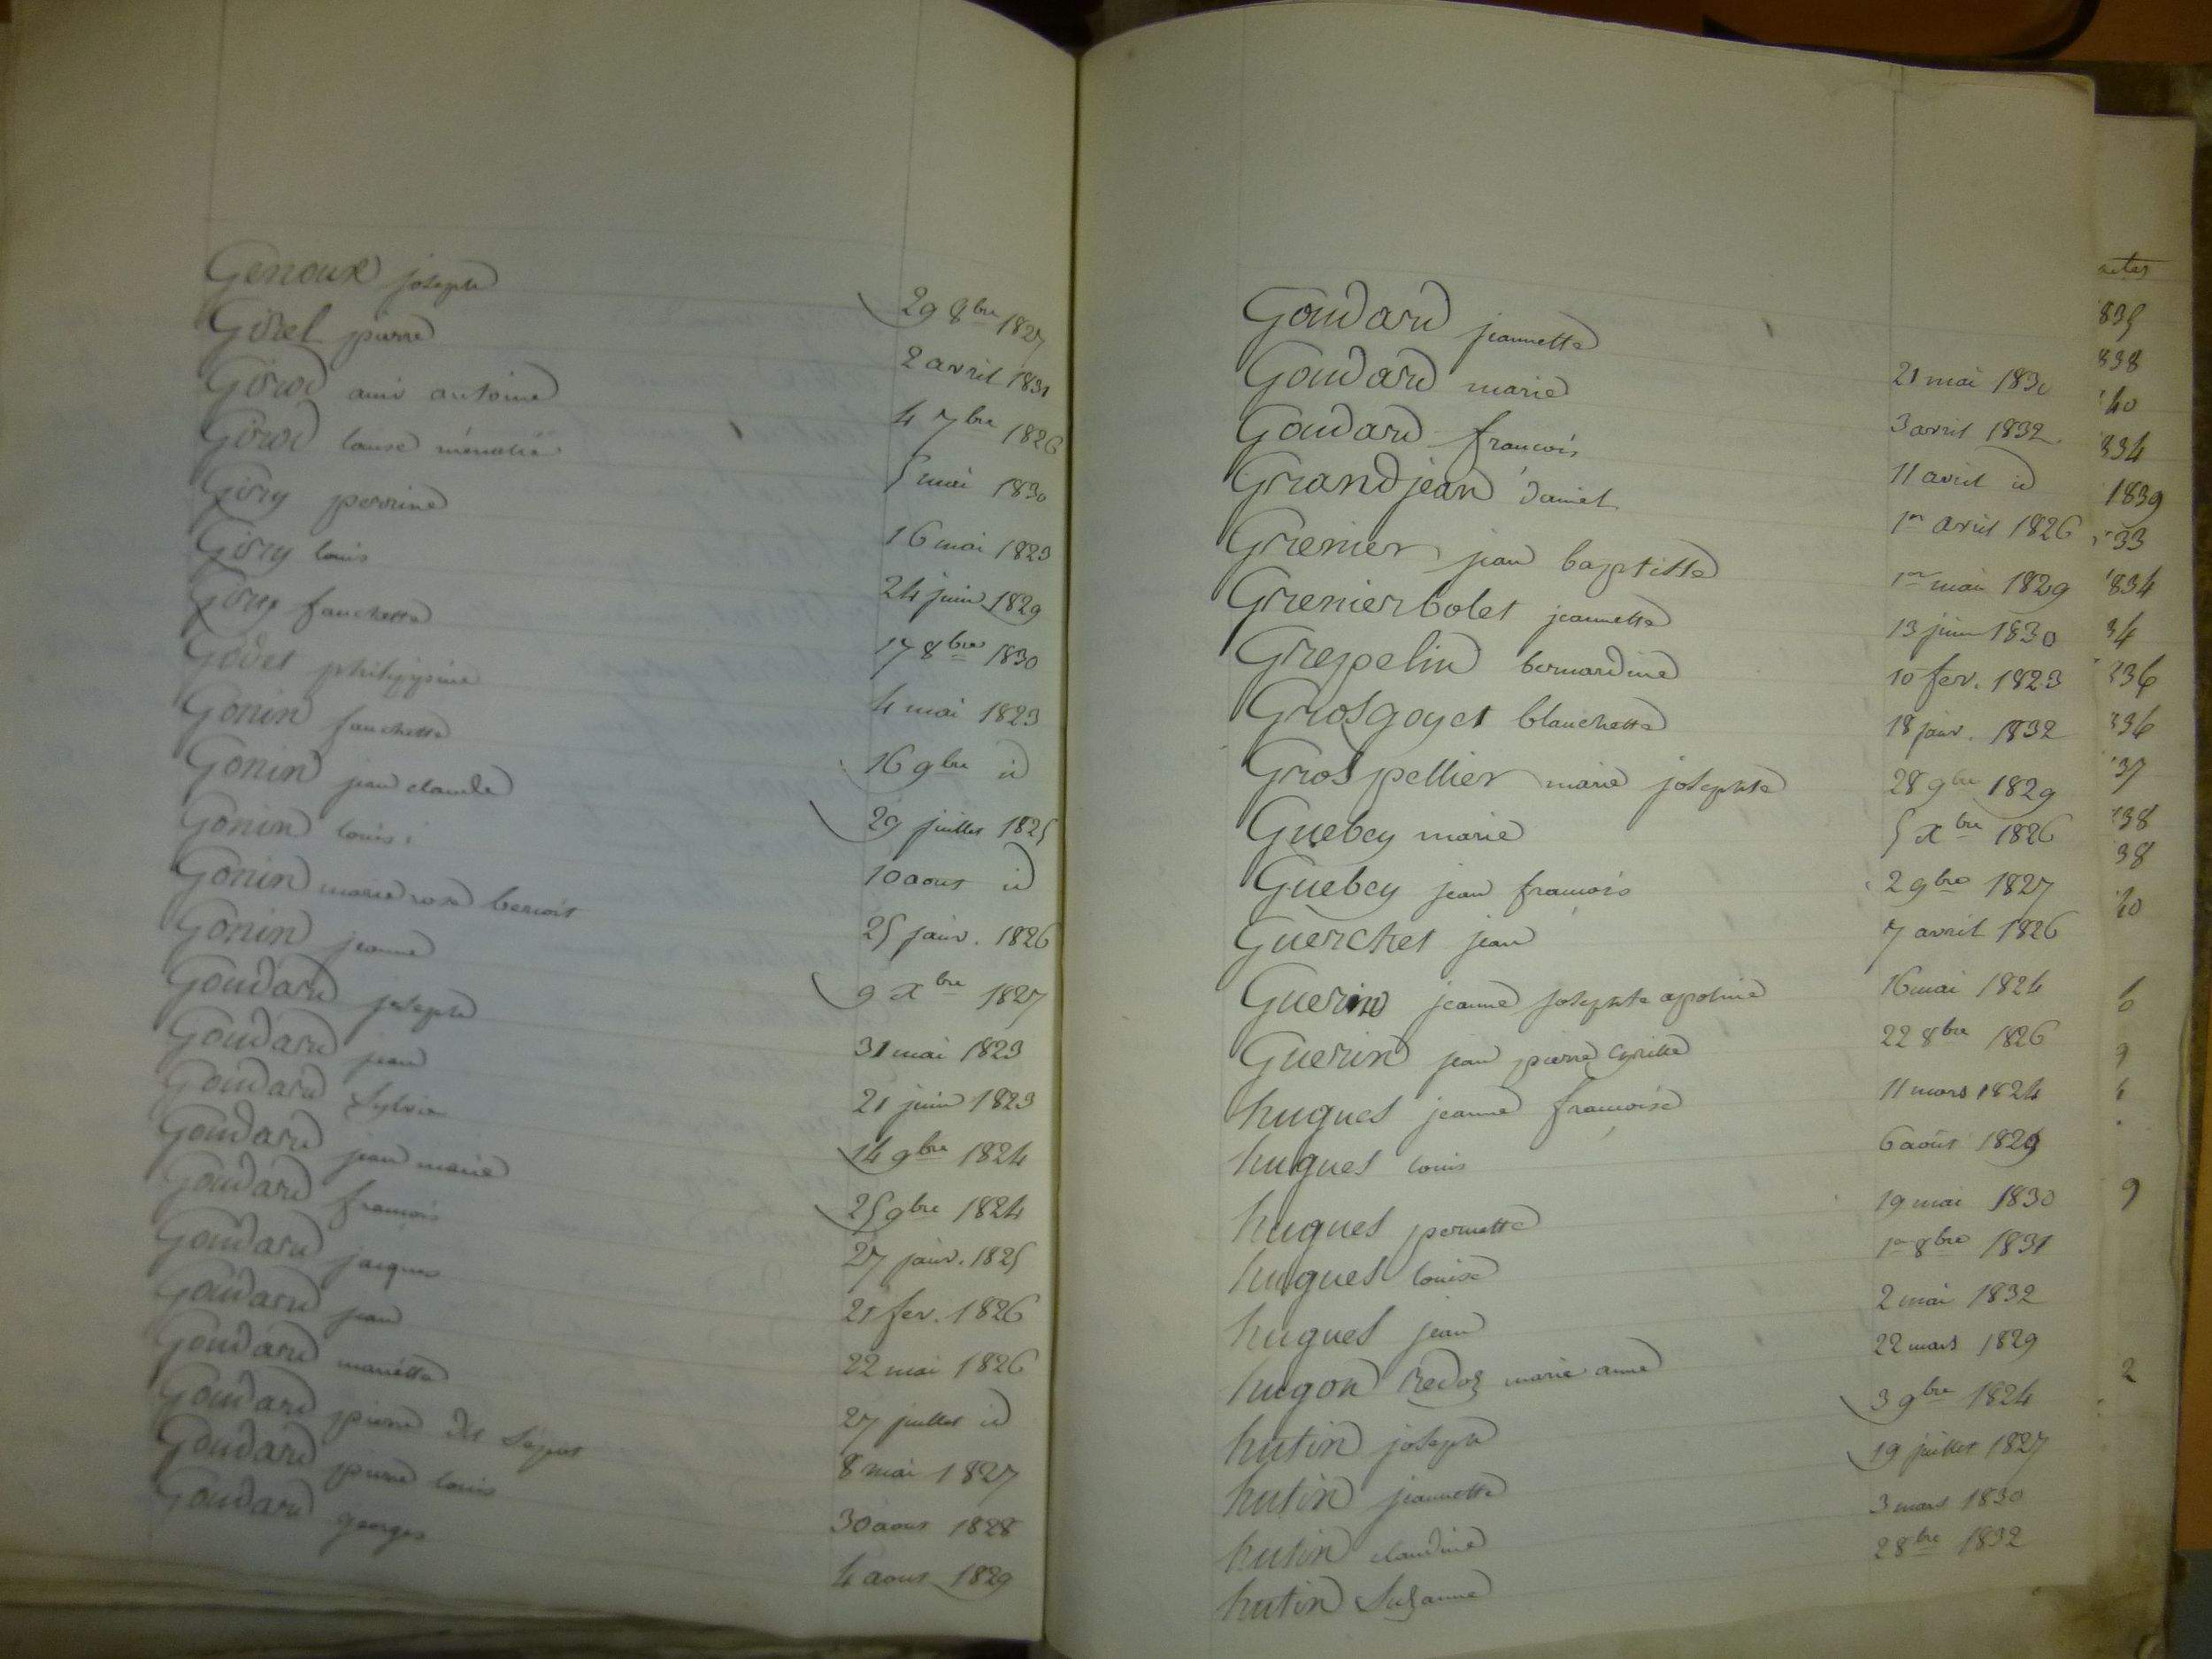 Genoux joseph 29 8bre 1827
Girel pierre 2 avril 1831
Girod ami antoine 4 7bre 1826
Girod louise 5 mai 1830
Girry perrine 16 mai 1823
Girry louis 24 juin 1829
Girry fanchette 17 8bre 1830
Godet philippine 4 mai 1823
Gonin fanchette 16 9bre id
Gonin jean claude 29 juillet 1825
Gonin louis 10 aout id
Gonin marie rose benoit 25 janv. 1826
Gonin jeanne 9 xbre 1827
Goudard joseph 31 mai 1823
Goudard jean 21 juin 1823
Goudard Sylvie 14 9bre 1824
Goudard jean marie 25 9bre 1824
Goudard francois 27 janv. 1825
Goudard jacques 21 fev. 1826
Goudard jean 22 mai 1826
Goudard mariette 27 juillet id
Goudard pierre dit 8 mai 1827
Goudard pierre louis 30 aout 1828
Goudard georges 4 aout 1829
Goudard jeannette 21 mai 1830
Goudard marie 3 avril 1832
Goudard francois 11 avril id
Grandjean daniel 1er avril 1826
Grenier jean baptiste 1er mai 1829
Grenierbolet jeannette 13 juin 1830
Grepelin bernardine 10 fev. 1823
Grosgoyet blanchette 18 janv. 1832
Grospellier marie josephte 28 9bre 1829
Guebey marie 5 xbre 1826
Guebey jean francois 2 9bre 1827
Guerchet jean 7 avril 1826
Guerin jeanne josephte apoline 16 mai 1824
Guerin jean pierre cyrille 22 8bre 1826
hugues jeanne francoise 11 mars 1824
hugues louis 6 août 1829
hugues pernette 19 mai 1830
hugues louise 1er 8bre 1831
hugues jean 2 mai 1832
hugon redoz marie anne 22 mars 1829
hutin joseph 3 9bre 1824
hutin jeannette 19 juillet 1827
hutin claudine 3 mars 1830
hutin Suzanne 2 8bre 1832
835
838
40
834
1839
33
834
34
836
836
37
38
38
40
9
2